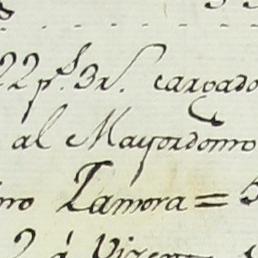 22 p.s 3 r.s cargado
al Mayordomo
Zamora =
2 á Vizen